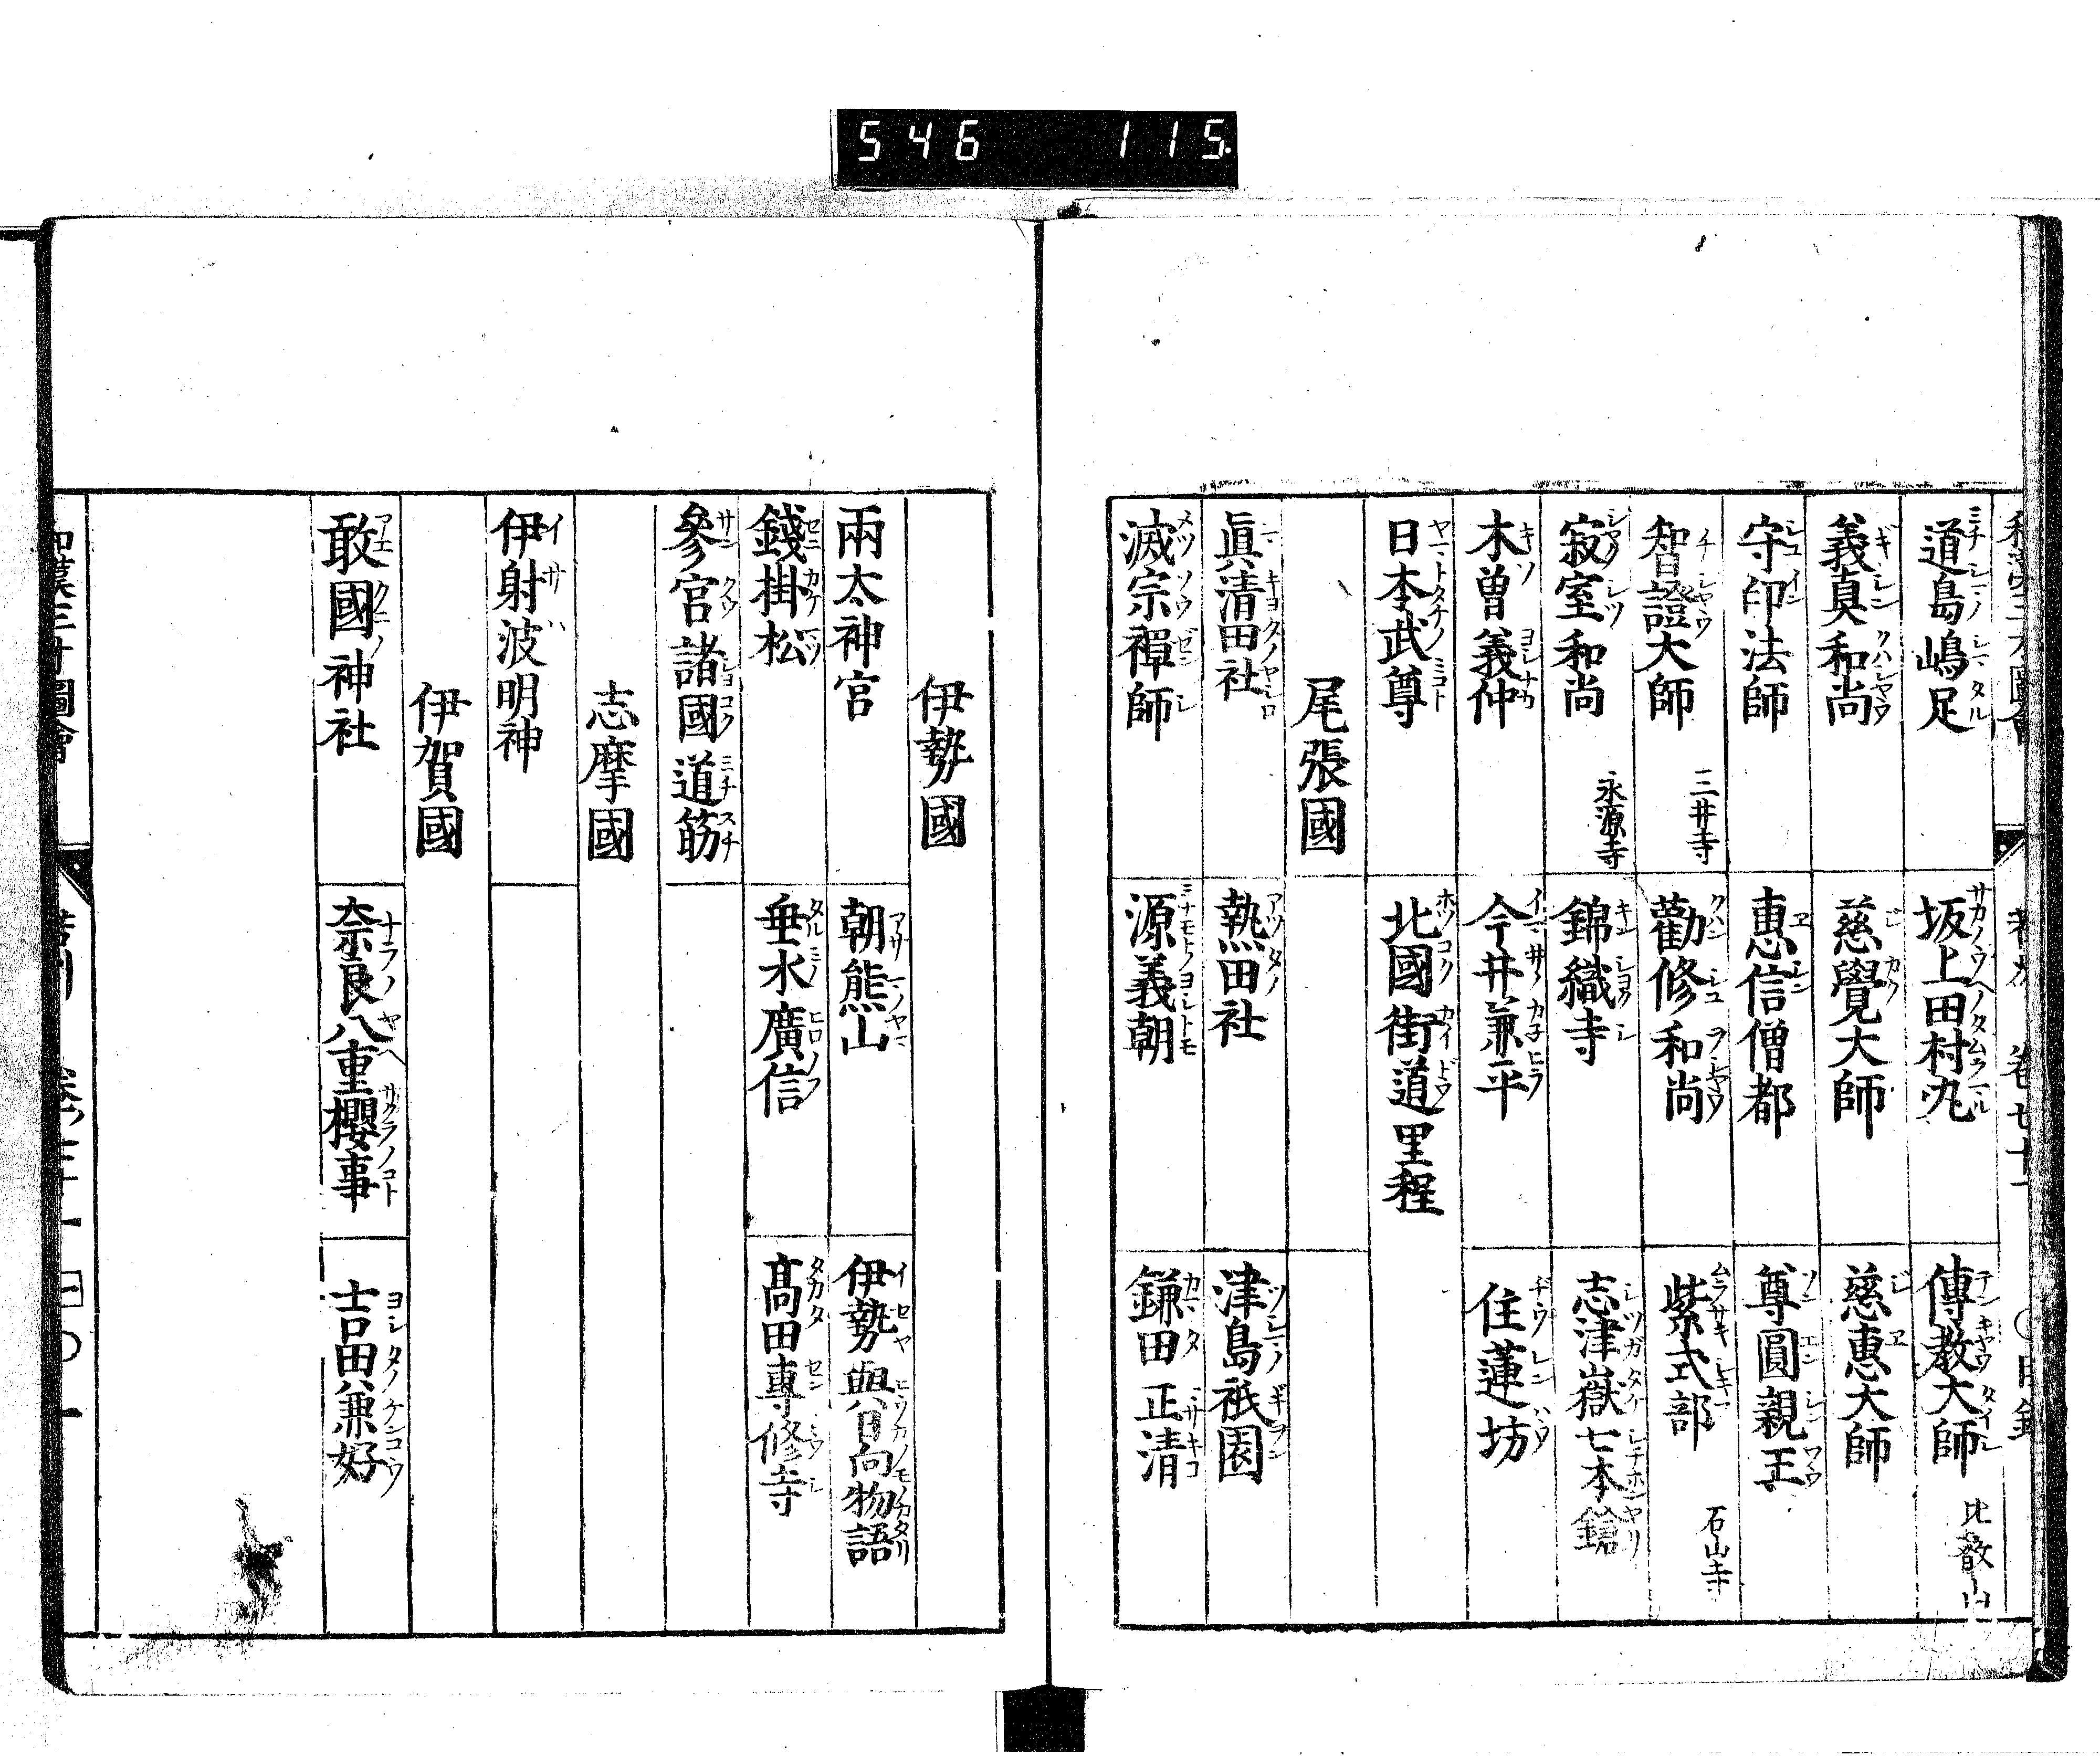 546 115
道島嶋足 坂上田村丸 傳教大師 比叡山
義真和尚 慈覺大師 慈惠大師
守印法師 惠信僧都 尊圓親王
智證大師 三井寺 勸修和尚 紫式部 石山寺
寂室和尚 永源寺 錦織寺 志津嶽七本鎗
木曽義仲 今井兼平 住蓮坊
日本武尊 北國街道里程
尾張國
眞清田社 熱田社 津島祇園
滅宗禪師 源義朝 鎌田正清
伊勢國
兩太神宮 朝熊山 伊勢與日向物語
錢掛松 垂水廣信 髙田專修寺
參宮諸國道筋
志摩國
伊射波明神
伊賀國
敢國神社 奈良八重櫻事 吉田兼好